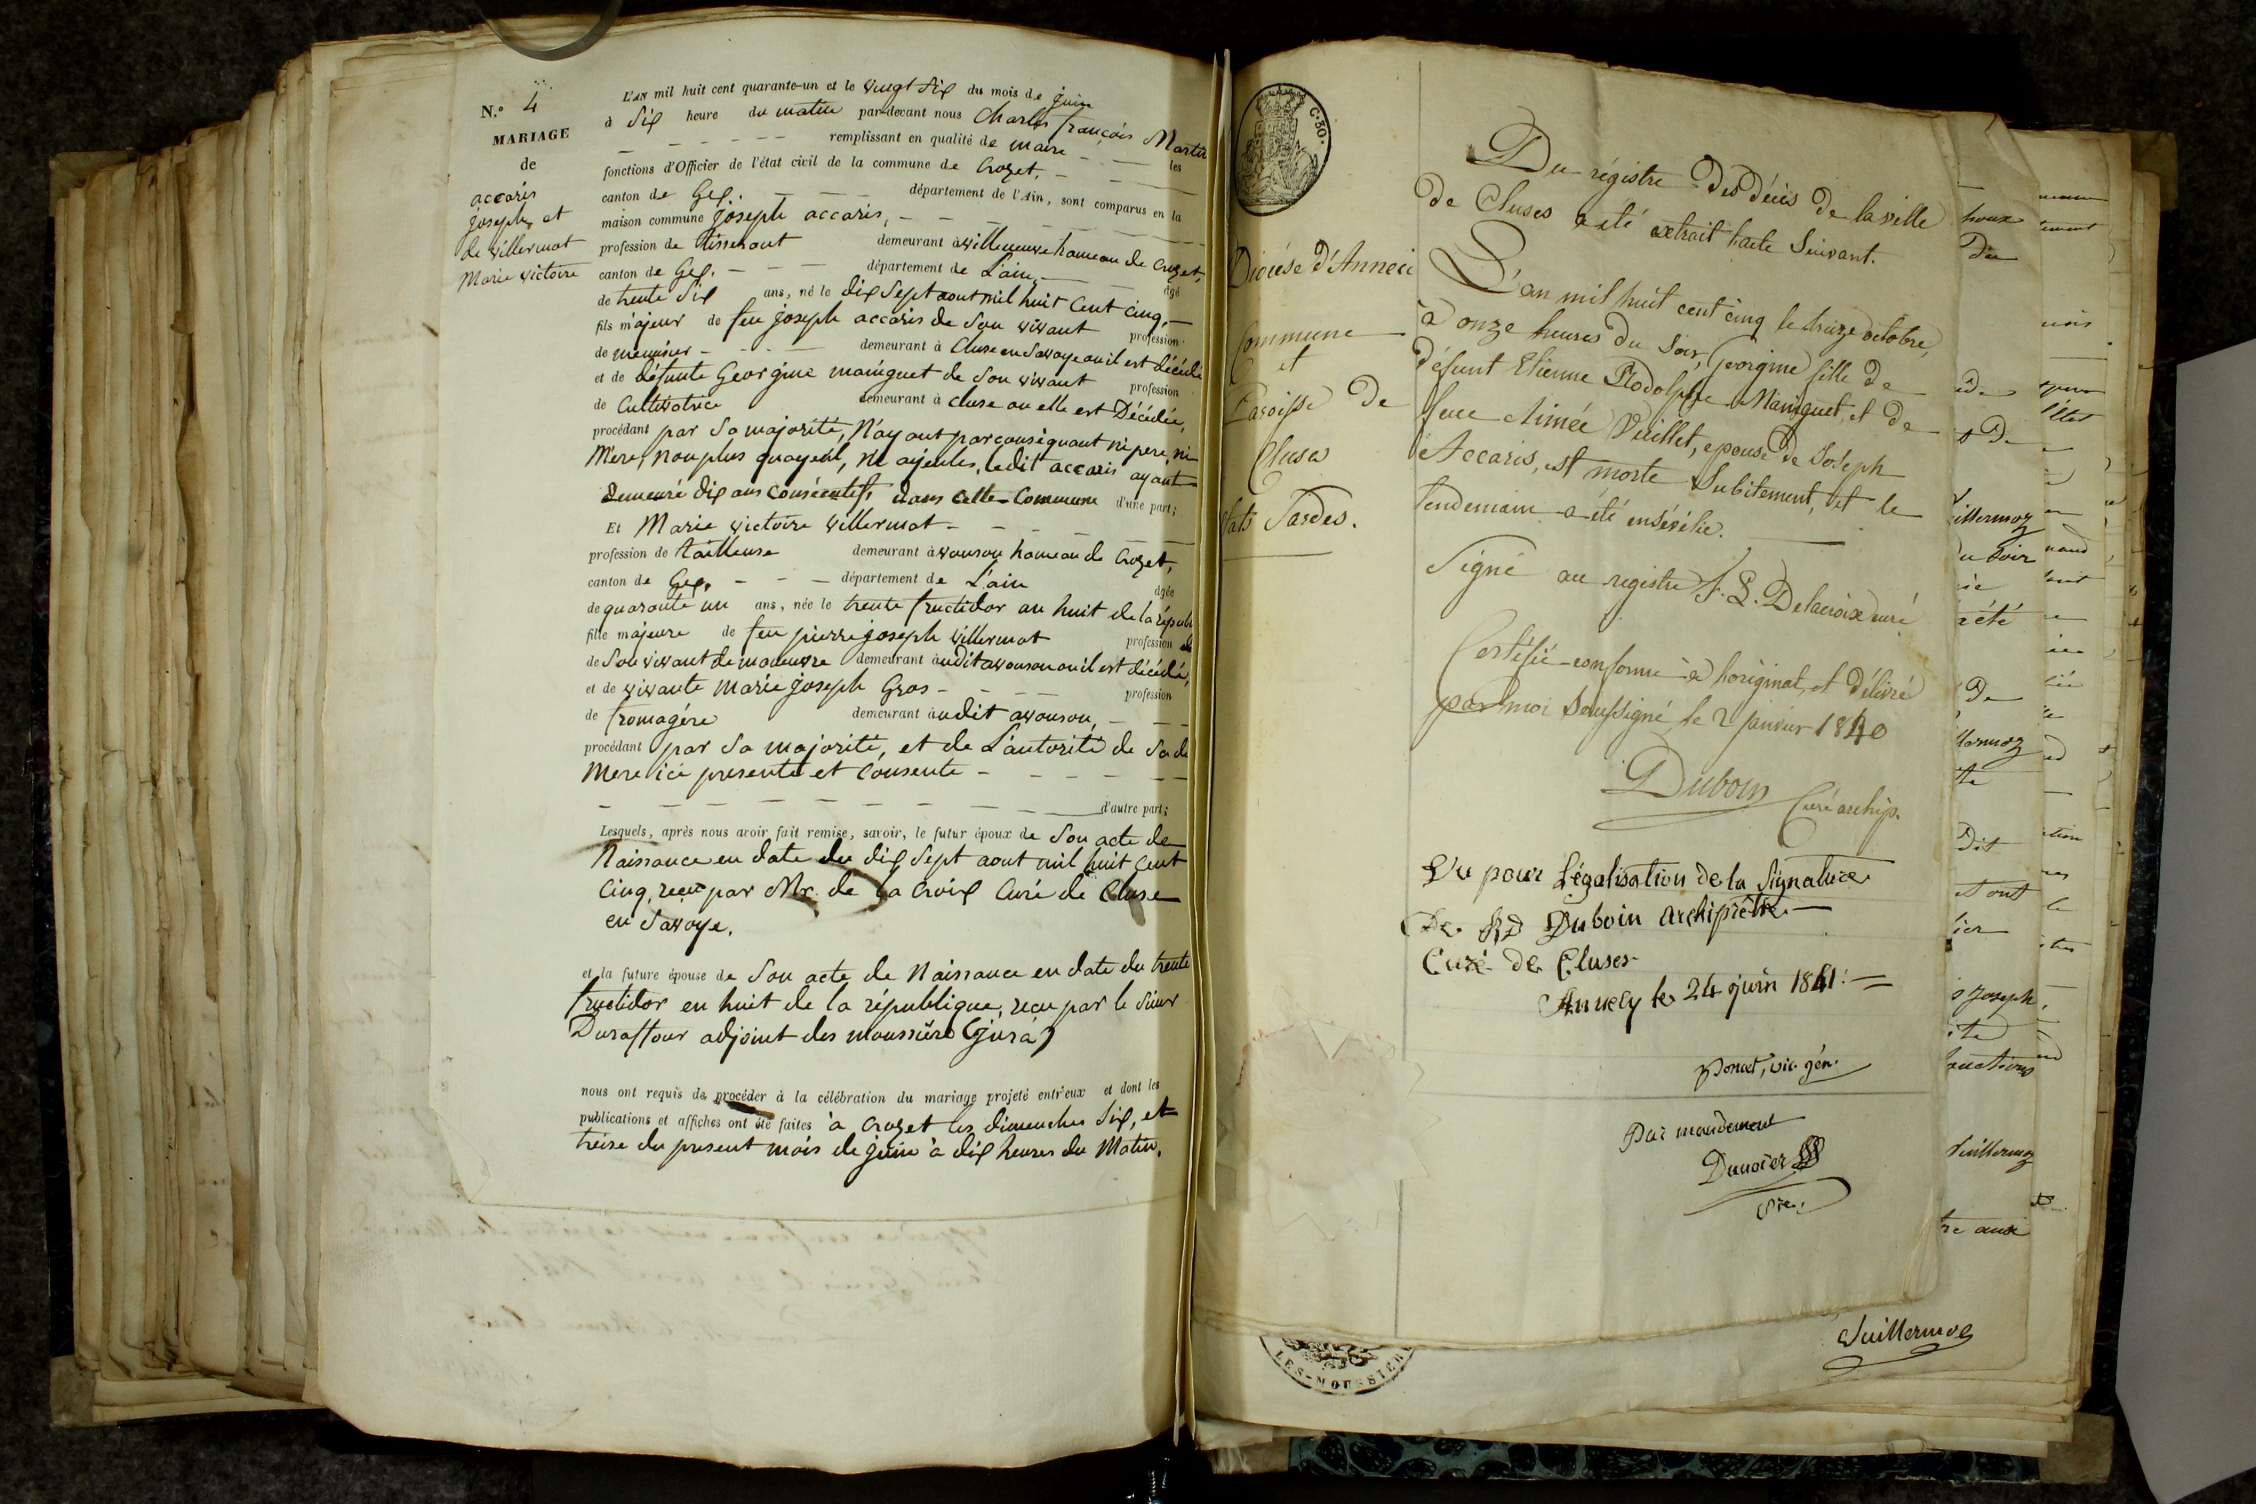 N.º 4
MARIAGE
de
accaris
joseph et
de villermot
Marie victoire
L'AN mil huit cent quarante-un et le vingt six du mois de juin
à six heure du matin par-devant nous Charles françois Martin
remplissant en qualité de maire les
fonctions d'Officier de l'état civil de la commune de Crozet,
canton de Gex. département de l'Ain, sont comparus en la
maison commune joseph accaris,
profession de tisserant demeurant à villeneuve hameau de Crozet,
canton de Gex. département de L'ain, âgé
de trente six ans, né le dix sept aout mil huit cent cinq,
fils majeur de feu joseph accaris de son vivant profession
de menuisier demeurant à Cluse en Savoye ou il est décédé
et de défunte Georgine maniguet de son vivant profession
de Cultivatrice demeurant à cluse ou elle est Décédée,
procédant par sa majorité, N'ayant par conséquant ni pere, ni
Mere, non plus qu'ayeul, ni ayeules, ledit accaris ayant
demeuré dix ans consécutifs dans cette Commune d'une part;
Et Marie victoire villermot
profession de tailleuse demeurant à avouson hameau de Crozet,
canton de Gex. département de L'ain âgée
de quarante un ans, née le trente fructidor an huit de la républ
fille majeure de feu pierre joseph villermot profession
de son vivant de manuvre demeurant audit avouson ou il est décédé,
et de vivante marie joseph Gros profession
de fromagére demeurant audit avouson,
procédant par sa majorité, et de L'autorité de sa de
Mere ici presente et consente
d'autre part;
Lesquels, après nous avoir fait remise, savoir, le futur époux de son acte de
Naissance en date du dix sept aout mil huit cent
cinq, reçu par Mr. de la croix Curé de Cluse
en Savoye.
et la future épouse de son acte de Naissance en date du trente
fructidor en huit de la république, reçu par le sieur
Duraffour adjoint des moussiere (jura)
nous ont requis de procéder à la célébration du mariage projeté entr'eux et dont les
publications et affiches ont été faites à Crozet les dimenches six, et
treise du present mois de juin à dix heures du Matin.
C.30.
Diocése d'Anneci
Commune
et
Paroisse de
Cluses
Etats Sardes.
Du régistre des décès de la ville
de Cluses a été extrait l'acte suivant.
L'an mil huit cent cinq le treize octobre,
à onze heures du soir, Georgine fille de
défunt Etienne Rodolphe Maniguet, et de
feue Aimée Vuillet, epouse de Joseph
Accaris, est morte subitement, et le
lendemain a été ensévélie.
Signé au registre J. L. Delacroix curé
Certifié conforme à l'original, et délivré
par moi soussigné le 2 janvier 1840
Duboin Curé archip.
Vu pour légalisation de la signature
De Rd Duboin archiprêtre
Curé de Cluses
Annecy le 24 juin 1841.
Poncet, vic. gén.
Par mandement
houx
Du
Villermoz
du Soir
été
De
Dit
et ont
Joseph,
Vuillermoz
re aux
LES-MOUSSIERES
Vuillermoz